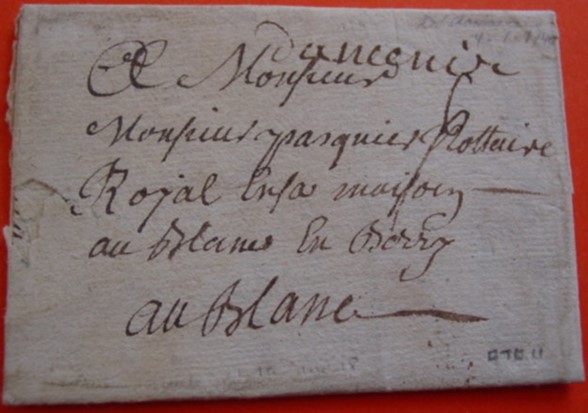 Damonir
A Monsieur
Monsieur pasquier Nottaire
Royal En sa maison
au Blanc En Berry
au Blanc